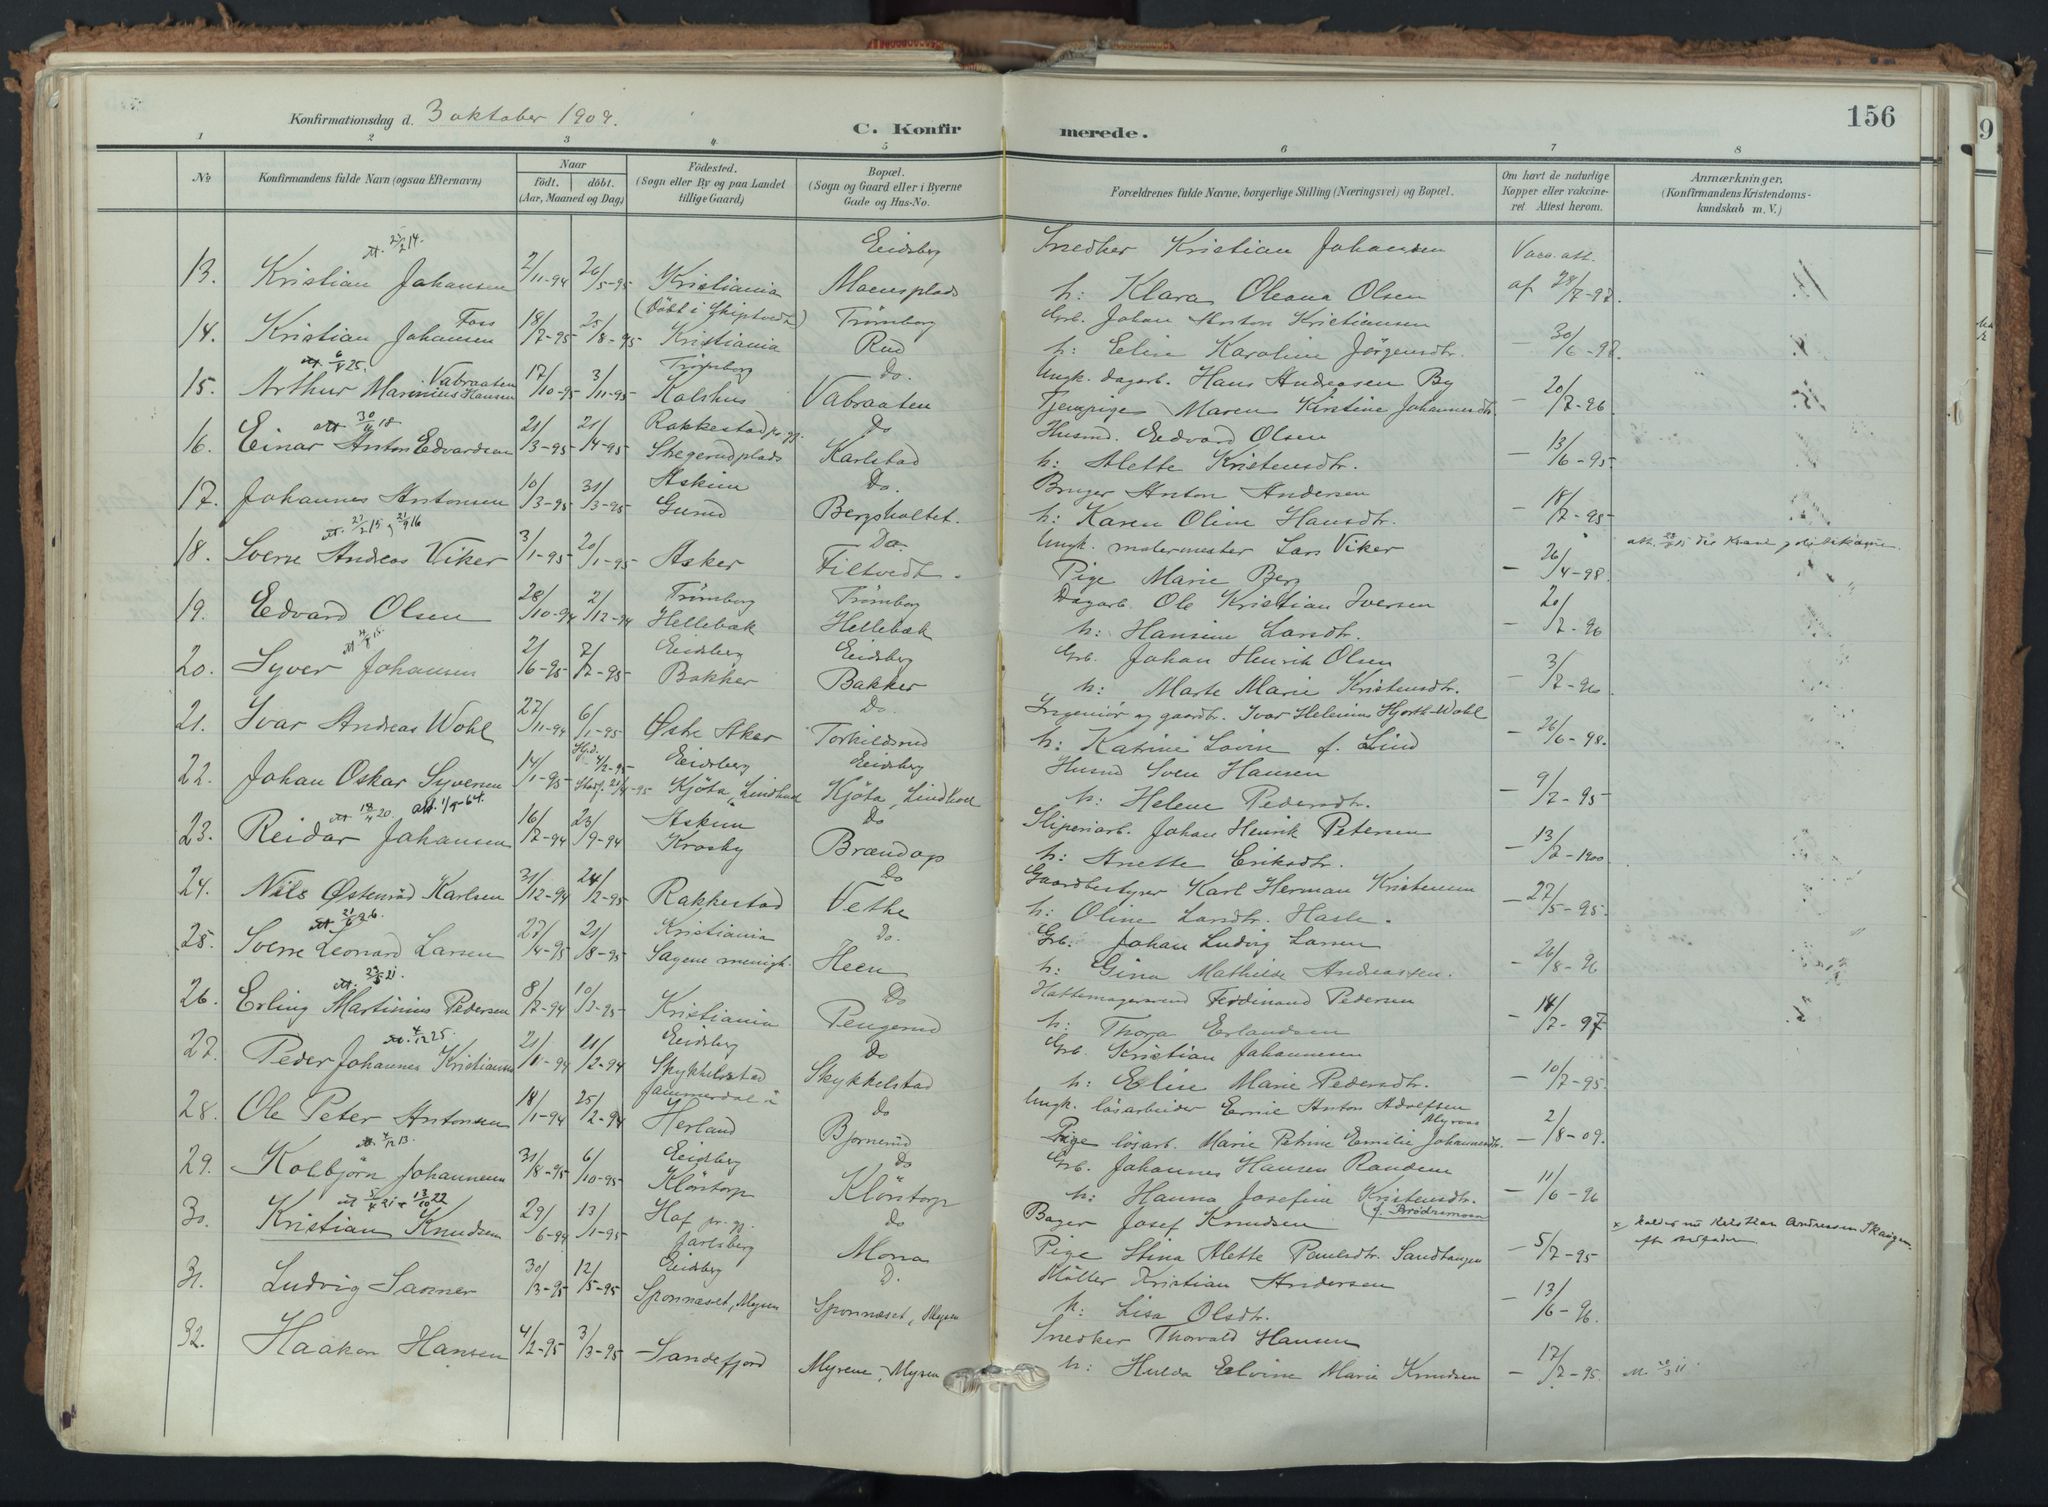 Konfirmationsdag d. 3 oktober 1909.
C. Konfirmerede.
156
1 2 3 4 5 6 7 8
No
Konfirmandens fulde Navn (ogsaa Efternavn)
Naar
födt. döbt.
(Aar, Maaned og Dag)
Födested.
(Sogn eller By og paa Landet
tillige Gaard)
Bopæl.
(Sogn og Gaard eller i Byerne
Gade og Hus-No.
Forældrenes fulde Navne, borgerlige Stilling (Næringsvei) og Bopæl.
Om havt de naturlige
Kopper eller vakcine-
ret Attest herom.
Anmærkninger.
(Konfirmandens Kristendoms-
kundskab m. V.)
att. 23/2 14. Eidsberg Snedker Kristian Johansen Vacc. att.
13. Kristian Johansen 2/11-94 26/5-95 Kristiania Moensplads h: Klara Oleana Olsen af 28/7-97.
Foss (Döbt i Skiptvedt) Trømborg Grb. Johan Anton Kristiansen
14. Kristian Johansen 18/7-95 25/8-95 Kristiania Rud h: Elise Karoline Jørgensdtr. – 30/6-98.
Vabraaten Trømborg Do. Ungk. dagarb. Hans Andreasen By
15. Arthur Marinius Hansen 17/10-95 3/11-95 Kolshus Vabraaten Tjenpige Maren Kirstine Johannesdtr. – 20/7-96
Rakkestad pr.gj. Do Husmd. Edvard Olsen
16. Einar Anton Edvardsen 21/3-95 21/4-95 Skegerudplads Karlstad h: Alette Kristensdtr. – 13/6-95
Askim Do. Bruger Anton Andersen
17. Johannes Antonsen 10/3-95 31/3-95 Gurud Bergsholtet. h: Karen Oline Hansdtr. – 18/7-95
att. 27/2 15, 21/9 16 Do. Ungk. malermester Lars Viker
18. Sverre Andreas Viker 3/1-95 20/1-95 Asker Filtvedt. Pige Marie Berg – 26/4-98.
Trømborg Trømborg Dagarb. Ole Kristian Iversen
19. Edvard Olsen 28/10-94 2/12-94 Hellebæk Hellebæk h: Hansine Larsdtr. – 20/7-96
Eidsberg Eidsberg Grb. Johan Henrik Olsen
20. Syver Johansen 2/6-95 7/7-95 Bakker Bakker h: Marte Marie Kristensdtr. – 3/7-96
Do. Ingeniør og gaardbr. Ivar Helenius Hjorth-Wohl
21. Ivar Andreas Wohl 27/11-94 6/1-95 Østre Aker Torkildsrud h: Katrine Lovise f. Lind – 26/6-98.
Hjd. 4/2-95 Eidsberg Eidsberg Husmd Sven Hansen
22. Johan Oskar Syversen 14/1-95 Stadf. 21/4-95 Kjöta, Lindhol Kjöta, Lindhol h: Helene Pedersdtr. – 9/7-95
att. 18/4 20. att. 1/9-64. Askim Do Sliperiarb. Johan Henrik Petersen
23. Reidar Johansen 16/7-94 23/9-94 Krosby Brændop h: Anette Eriksdtr. – 13/7-1900
Do Gaardbestyrer Karl Herman Kristensen
24. Nils Østenröd Karlsen 31/12-94 24/2-95 Rakkestad Vethe h: Oline Larsdtr. Hasle. – 27/5-95.
att. 21/6 26. Kristiania Do. Grb. Johan Ludvig Larsen
25. Sverre Leonard Larsen 27/4-95 21/8-95 Sagene menigh. Heen h: Gina Mathilde Andreassen. – 26/8-96
att. 23/5 21. Do Hattemagersvend Ferdinand Pedersen
26. Erling Martinius Pedersen 8/7-94 10/3-95 Kristiania Pengerud h: Thora Erlandsen – 14/7-97
att. 4/12 25. Eidsberg Do Grb. Kristian Johannesen
27. Peder Johannes Kristiansen 21/11-94 21/2-94 Skykkelstad Skykkelstad h: Elise Marie Pedersdtr. – 10/7-95
Jammerdal i Do Ungk. lösarbeider Ernie Anton Adolfsen
28. Ole Peter Antonsen 18/1-94 25/2-94 Herland Bjornerud Pige lösarb. Marie Petrine Emilie Johannesdtr. – 2/8-09.
att. 4/12 13. Eidsberg Do Grb. Johannes Hansen Randem
29. Kolbjörn Johannesen 31/8-95 6/10-95 Klöntorp Klöntorp h: Hanna Josefine Kristensdtr. – 11/6-96
att 5/4 21 + 13/10 22 Hof pr. gj. Do Bager Josef Knudsen
30. Kristian Knudsen 29/6-94 13/1-95 Jarlsberg Mona Pige Stina Alette Paulsdtr. Sandtangen – 5/7-95
Eidsberg D. Möller Kristian Andersen
31. Ludvig Sanner 30/3-95 12/5-95 Sponnæset, Mysen Sponnæset, Mysen h: Lisa Olsdtr. – 13/6-96.
Snedker Thorvald Hansen
32. Haakon Hansen 4/2-95 3/3-95 Sandefjord Myrene, Mysen h: Hulda Elvine Marie Knudsen – 17/7-95